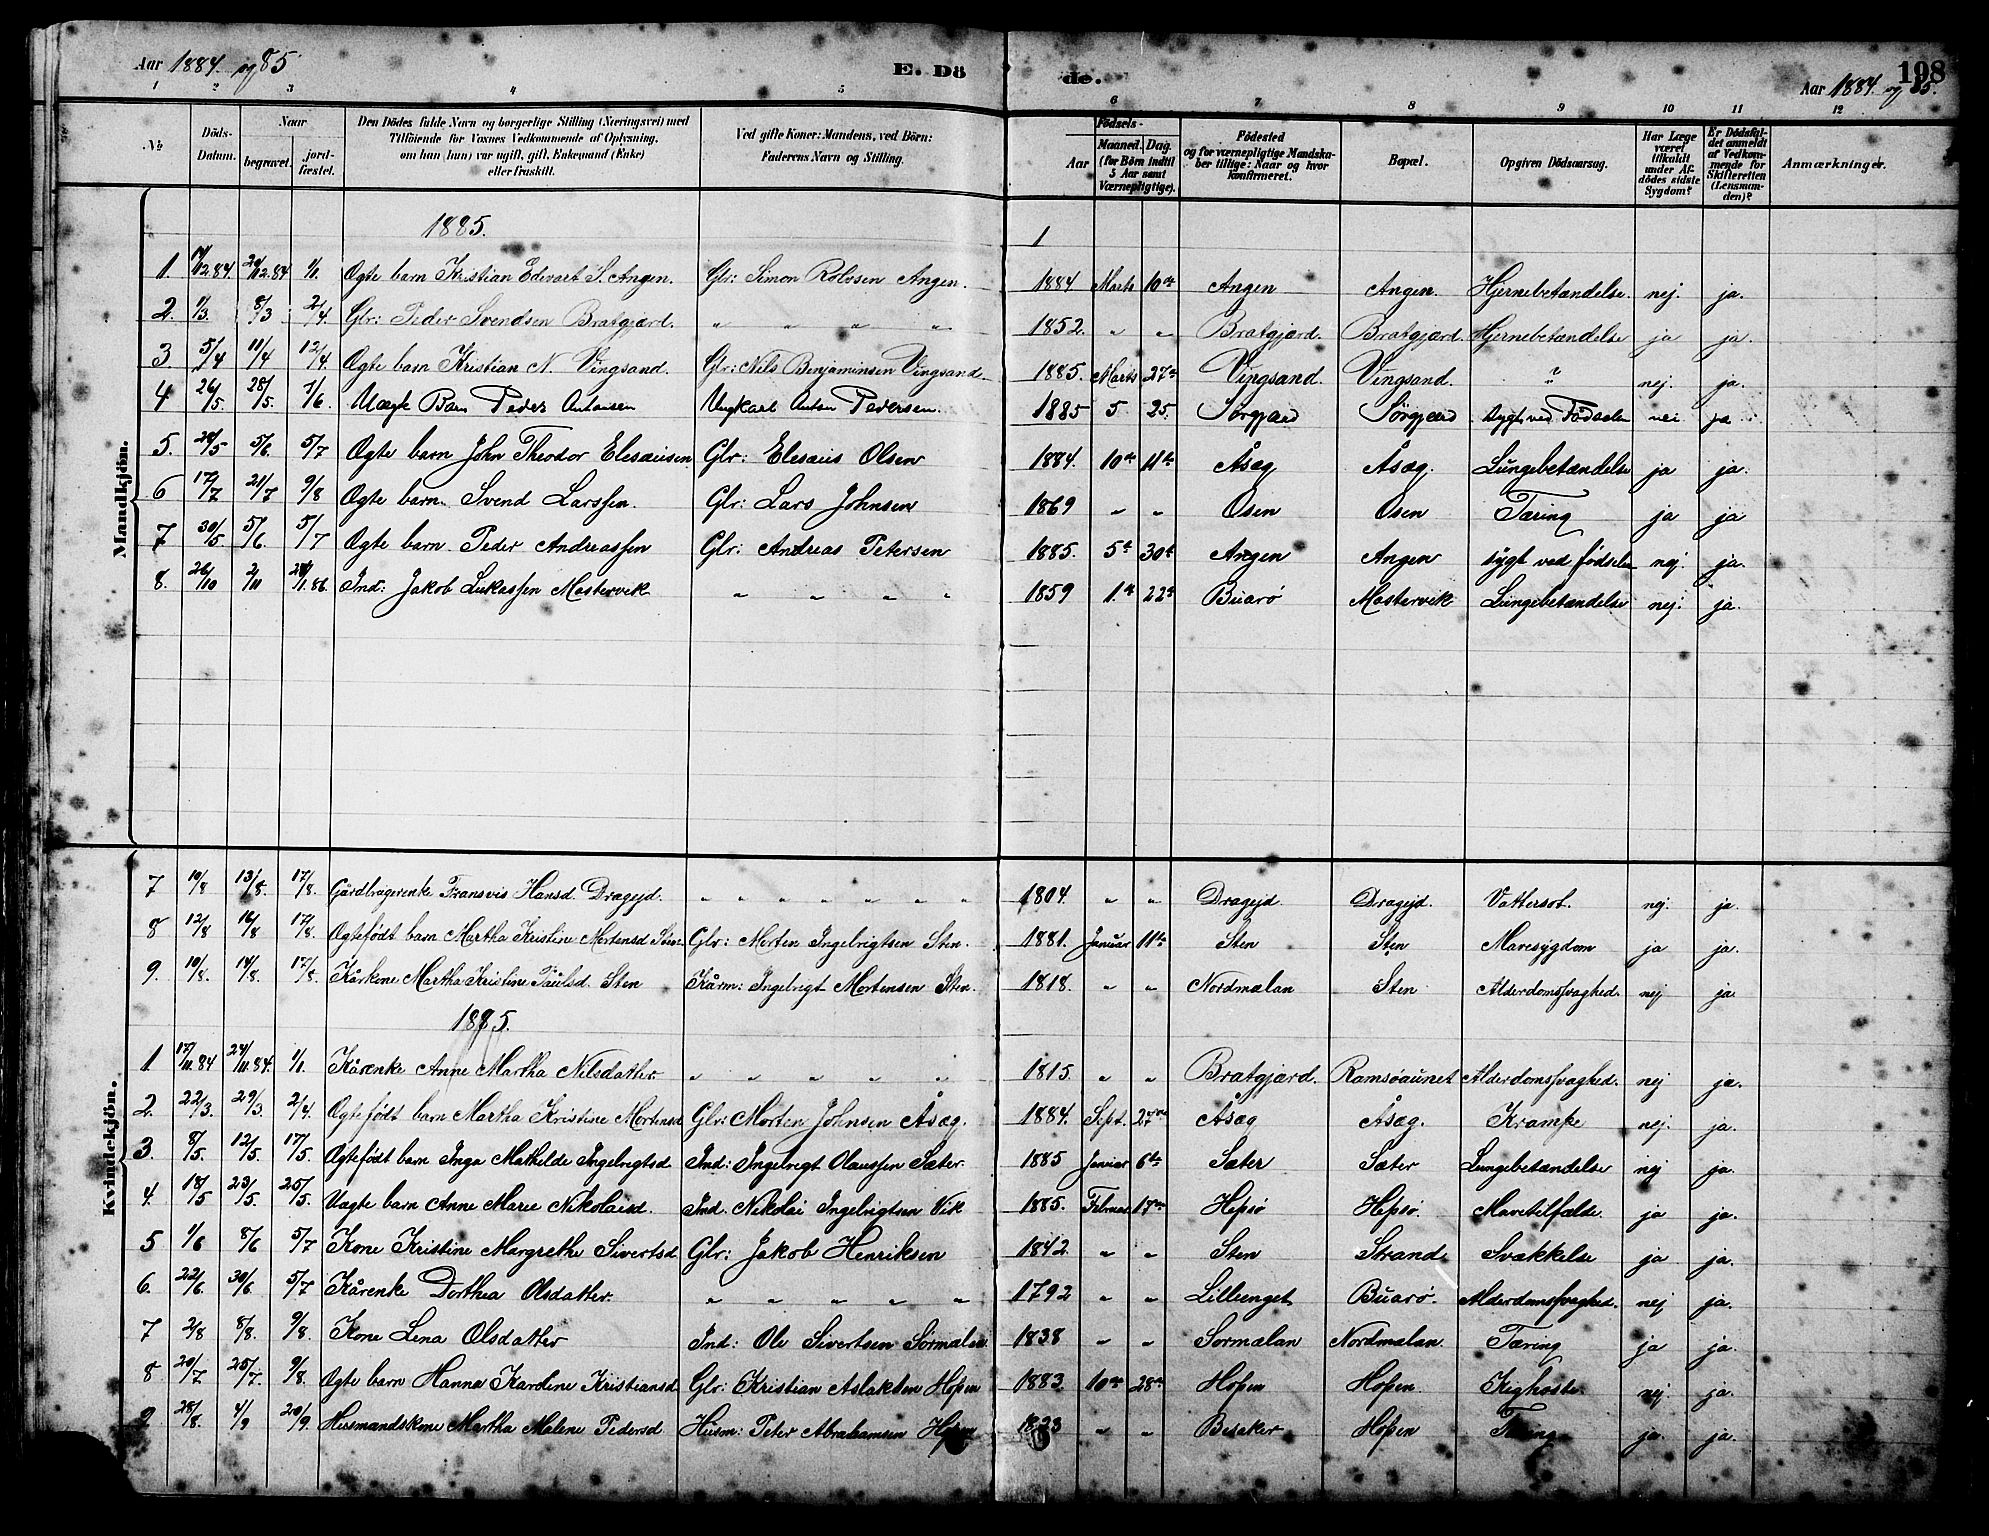 Aar 1884 og 85. E. Dö de. 198
Aar 1884 og 85.
1 2 3 4 5 6 7 8 9 10 11 12
№ Döds-Datum. Naar begravet. jordfæstet. Den Dödes fulde Navn og borgerlige Stilling (Næringsvei) med Tilföiende for Voxnes Vedkommende af Oplysning, om han (hun) var ugift, gift, Enkemand (Enke) eller fraskilt. Ved gifte Koner: Mandens, ved Börn: Faderens Navn og Stilling. Födsels- Aar Maaned. Dag. (for Börn indtil 5 Aar samt Værnepligtige). Födested og for værnepligtige Mandskaber tillige: Naar og hvor konfirmeret. Bopæl. Opgiven Dödsaarsag. Har Læge været tilkaldt under Afdödes sidste Sygdom? Er Dödsfaldet anmeldt af Vedkommende for Skifteretten (Lensmanden)? Anmærkninger.
Mandkjön.
1885.
1. 17/12 84 29/12 84 1/1. Ægte barn Kristian Edvart S. Angen. Glr: Simon Rolosen Angen. 1884 Marts 10de Angen Angen. Hjernebetændelse. nej. ja.
2. 1/3. 8/3 2/4. Glr: Peder Svendsen Bratgjærd. „ „ „ „ 1852. „ „ Bratgjærd. Bratgjærd. Hjernebetændelse ja ja.
3. 5/4 11/4 12/4. Ægte barn Kristian N. Vingsand. Glr: Nils Benjaminsen Vingsand. 1885. Marts 27de Vingsand. Vingsand. ? nej. ja.
4 26/5. 28/5. 7/6. Uægte Barn Peder Antonsen Ungkarl Anton Pedersen. 1885 5 25. Sörgjærd Sörgjærd sygt ved Födselen nei ja
5. 29/5 5/6. 5/7 Ægte barn John Theodor Elesæusen Glr: Elesæus Olsen 1884. 10de 11te Åsæg Åsæg. Lungebetændelse ja ja.
6 17/7 21/7 9/8 Ægte barn Svend Larssen. Glr: Lars Johnsen 1869 „ „ Osen Osen Tæring ja ja
7 30/5 5/6. 5/7 Ægte barn Peder Andreassen Glr: Andreas Petersen 1885. 5te 30te Angen Angen sygt ved födselen nej. ja.
8. 26/10 2/11 24/1 86 Ind: Jakob Lukassen Mastervik „ „ „ „ 1859 1ste 22de Buarö Mastervik Lungebetændelse nej. ja.
Kvindekjön.
7 10/8 13/8. 17/8. Gårdbrugerenke Fransvis Hansd. Drageid. „ „ „ „ „ „ „ 1804. „ „ Drageid. Drageid. Vattersot. nej. ja
8 12/8 16/8 17/8. Ægtefödt barn Martha Kristine Mortensd Sten Glr: Morten Ingebrigtsen Sten. 1881. Januar 11te Sten Sten Mavesygdom ja ja.
9. 10/8. 14/8. 17/8. Kårkone Martha Kristine Paulsd. Sten Kårm: Ingebrigt Mortensen Sten. 1818. „ „ Nordmælan Sten Alderdomssvaghed. nej ja.
1885.
1 17/11 84 24/11 84. 1/1. Kårenke Anne Martha Nilsdatter. „ „ „ „ „ 1815. „ „ Bratgjærd. Ramsöaunet Alderdomssvaghed. nej ja.
2. 22/3. 29/3. 2/4. Ægtefödt barn Martha Kristine Mortensd Glr: Morten Johnsen Åsæg. 1884. Sept. 27de Åsæg Åsæg. Krampe nej. ja.
3. 8/5. 12/5. 17/5. Ægtefödt barn Inga Mathilde Ingebrigtsd Ind: Ingebrigt Olaussen Sæter. 1885 Januar 6te Sæter Sæter Lungebetændelse nej ja.
4. 18/5 23/5. 25/5. Uægte barn Anne Marie Nikolaisd. Ind. Nikolai Ingebrigtsen Vik 1885. Februar 17de Hepsö Hepsö. Mavetilfælde. ja ja.
5 1/6 8/6 5/7 Kone Kristine Margrethe Sivertsd Glr: Jakob Henriksen 1842 „ „ Sten Strand Svækkelse ja ja.
6. 22/6. 30/6. 5/7 Kårenke Dorthea Olsdatter. „ „ „ „ „ 1792 „ „ Lillienget Buarö. Alderdomssvaghed. nej ja.
7 2/8 8/8. 9/8. Kone Lena Olsdatter Ind: Ole Sivertsen Sörmælan 1838 „ „ Sörmælan Nordmælan. Tæring ja ja.
8 20/7 25/7. 9/8. Ægte barn Hanna Karoline Kristiansd Glr: Kristian Aslaksen Hopen 1883. 10de 28de Hopen Hopen. Kighoste nej ja.
9 28/8. 4/9 20/9. Husmandskone Martha Malene Pedersd Husm: Peter Abrahamsen Hopen 1823 „ „ Besaker Hopen Tæring ja. ja.